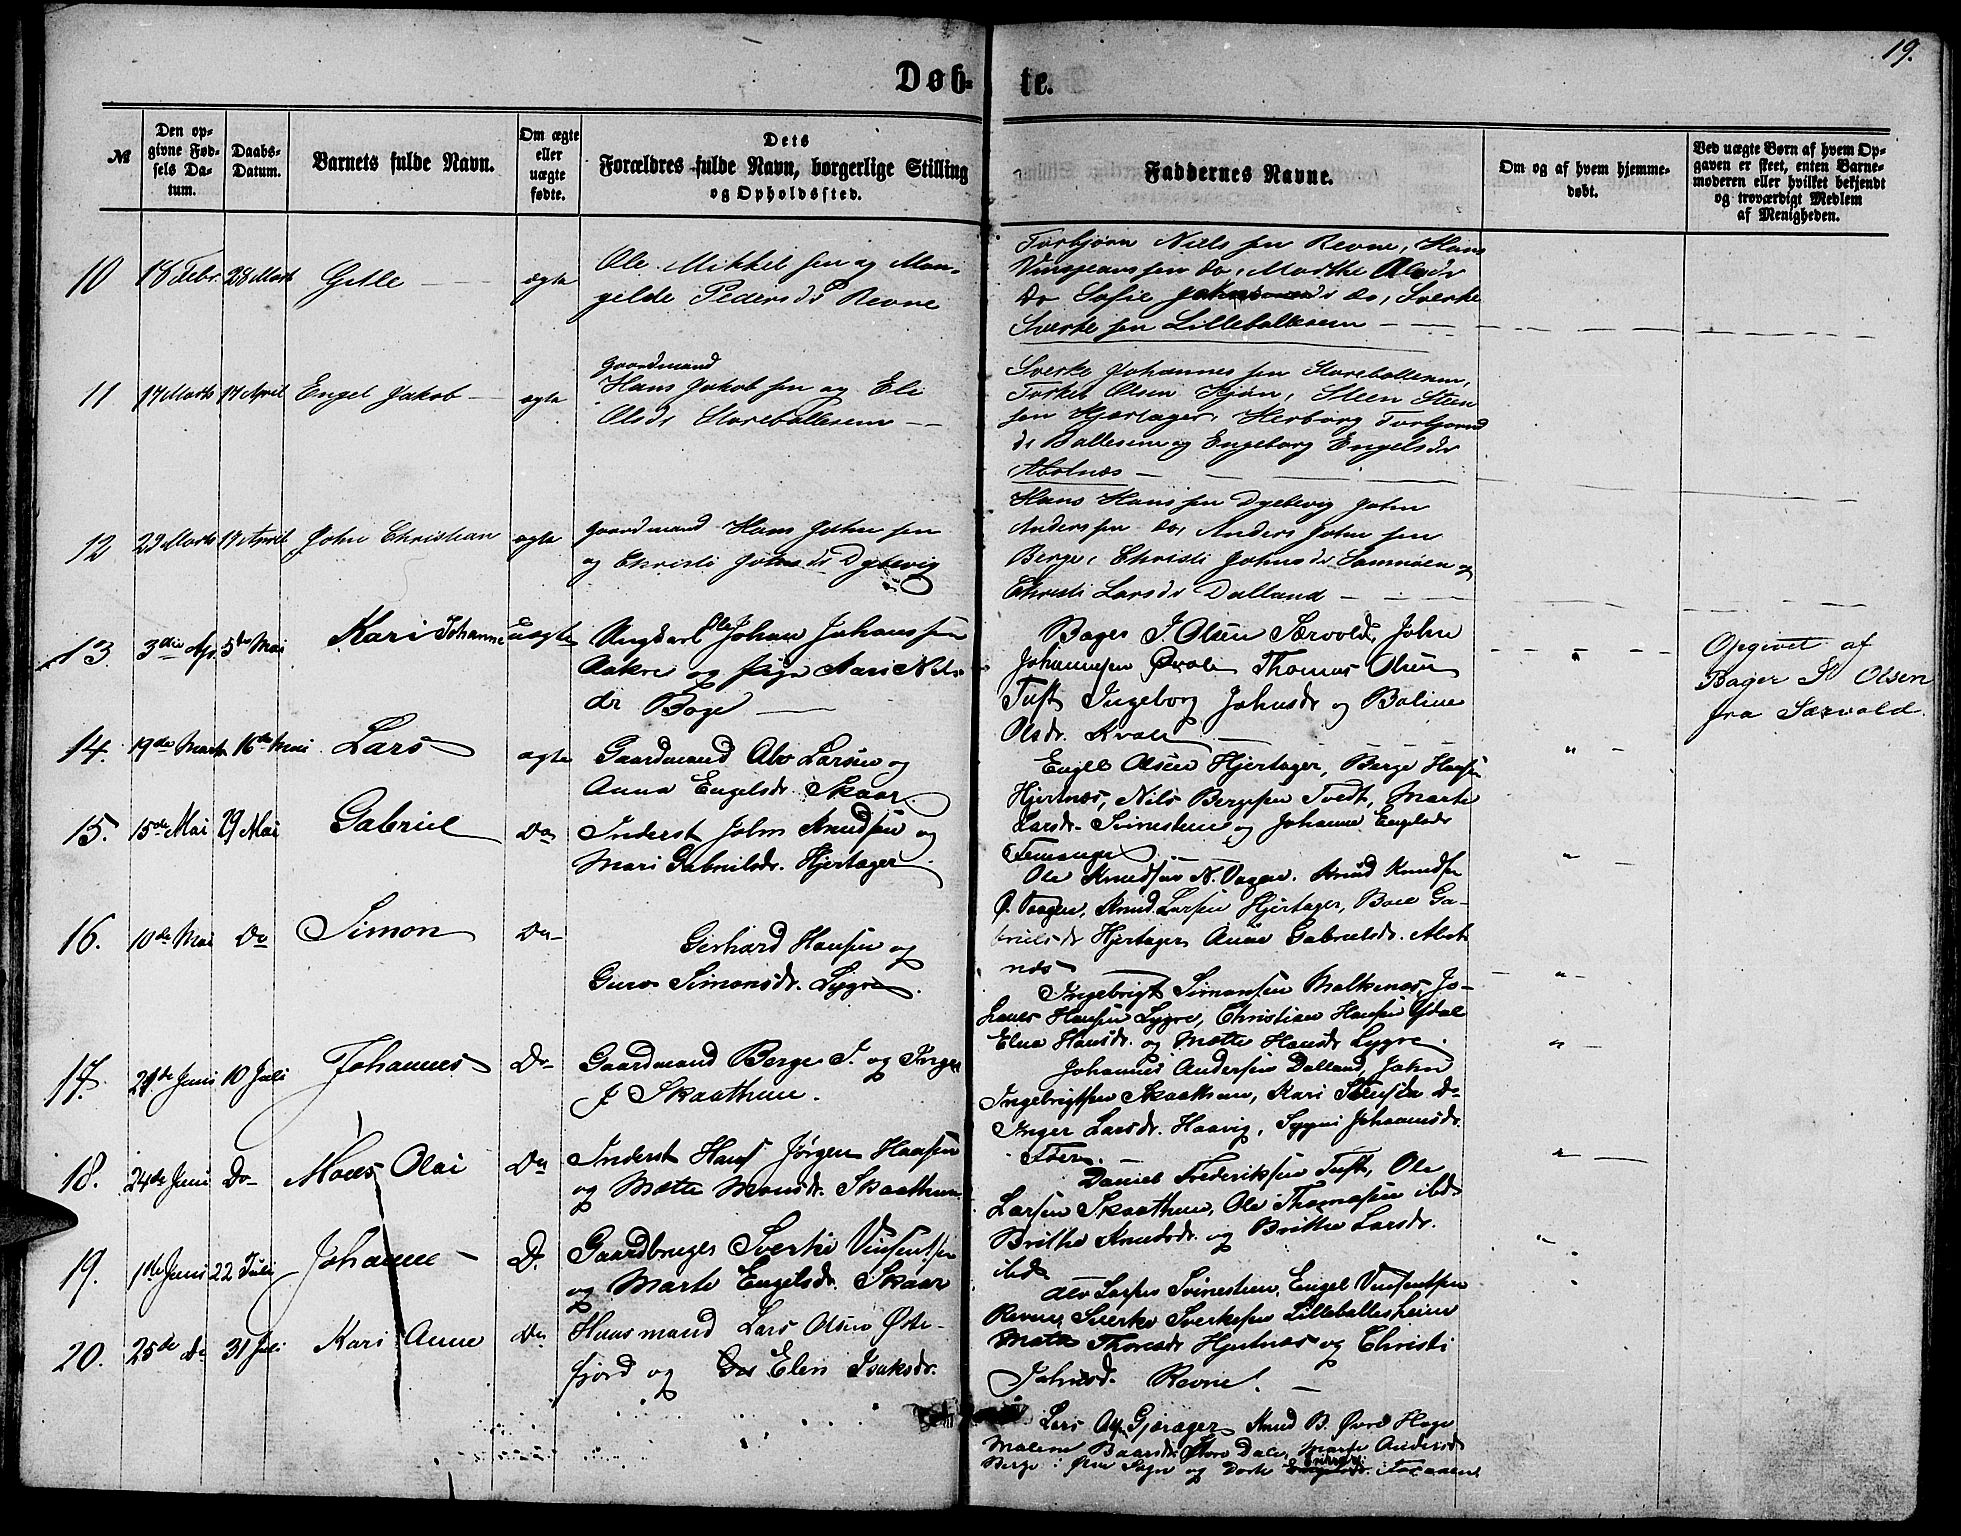 19.
Døb- te.
№
Den op-
givne Fød-
sels Da-
tum.
Daabs-
Datum.
Barnets fulde Navn.
Om ægte
eller
uægte
fødte.
Dets
Forældres fulde Navn, borgerlige Stilling
og Opholdssted.
Faddernes Navne.
Om og af hvem hjemme-
døbt.
Ved uægte Børn af hvem Op-
gaven er skeet, enten Barne-
moderen eller hvilket bekjendt
og troværdigt Medlem
af Menigheden.
10 18 Febr 28 Marts Gitle ægte
Ole Mikkelsen og
Pedersdr Revne
Torbjørn Nielssen Revne, Hans
do, Marthe Olsdr
do Sofie do, Sverke
Sverkesen Lilleballesem
11 17 Marts 17 April Engel Jakob ægte
Gaardmand
Hans Jakobsen og Eli
Olsdr Storeballesem
Sverke Johannessen Storeballesem,
Torkel Olsen Steen Steen
sen Hjertager, Herborg Torbjørns
dr Ballesem og Engeborg Engelsdr
12 29 Marts 17 April John Christian ægte
Gaardmand Hans Johnsen
og Christi Johnsdr Dybevig
Hans Hanssen Dybevig John
Anderssen do, Anders Johnsen
Berge, Christi Johnsdr Samnøen og
Christi Larsdr Dalland
13. 3die Ap. 5te Mai Kari Johanne uægte
Ungkarl Ole Johan Johanssen
Aakre og pige Kari Nils
dr Boge
Bager I. Olsen Særvold, John
Johannesen Thomas Olsen
Tuft Ingeborg Johnsdr og Boline
Olsdr. Kvale
Opgivet af
Bager I Olsen
fra Særvold.
14. 19de Marts 16de Mai Lars ægte
Gaardmand Alv Larsen og
Anna Engelsdr. Skaar
Engel Olsen Hjertager, Berge Hansen
Hjertnæs, Nils Bergesen Tvedt, Marte
Larsdr. Svinestuen og Johanne Engelsdr
15. 15de Mai 29 Mai Gabriel Do
Inderst John Knudsen og
Mari Gabrielsdr. Hjertager
Ole Knudsen N. Vagen. Knud Knudsen
Ø. Vaagen, Knud Larsen Hjertager, Boel Ga-
brielsdr Hjertager Anne Gabrielsdr. Alst
næs
16. 10de Mai Do Simon Do
Gerhard Hansen og
Guro Simonsdr. Lygre.
Ingebrigt Simonsen Malkenæs, Jo-
hanes Hansen Lygre, Christian Hansen Ydal
Elna Hansdr. og Mette Hansdr Lygre.
17. 21de Juni 10 Juli Johannes Do
Gaardmand Berge J. og Inger
J Skaathun.
Johannes Andersen Dalland, John
Ingebrigtsen Skaathun, Kari Do
Inger Larsdr. Haavig, Johannesdr.
18. 24de Juni Do Mons Olai Do
Inderst Hans Jørgen Hansen
og Mette Monsdr. Skaathun
Daniel Frederiksen Tuft, Ole
Larsen Skaathun, Ole Thomasen ibd
Brithe Knudsdr. og Britthe Larsdr.
ibd
19. 1ste Juni 22 Juli Johanne Do
Gaardbruger Sverke Vinsentsen
og Marte Engelsdr. Skaar
Alv Larsen Svinestuen, Engel Vinsentsen
Revne, Sverke Sverkesen Lilleballesheim
Mette Thoresdr Hjertnæs og Christi
Johnsd. Revne.
20. 25de Do 31 Juli Kari Anne Do
Huusmand Lars Olsen Øste-
fjord og Elen Isaksdr.
Lars Gjerager Knud B. Øvre Hage
Malene Baarsdr Store Dale, Marte Andersdr
Berge i Øvre Sogn og Dorte